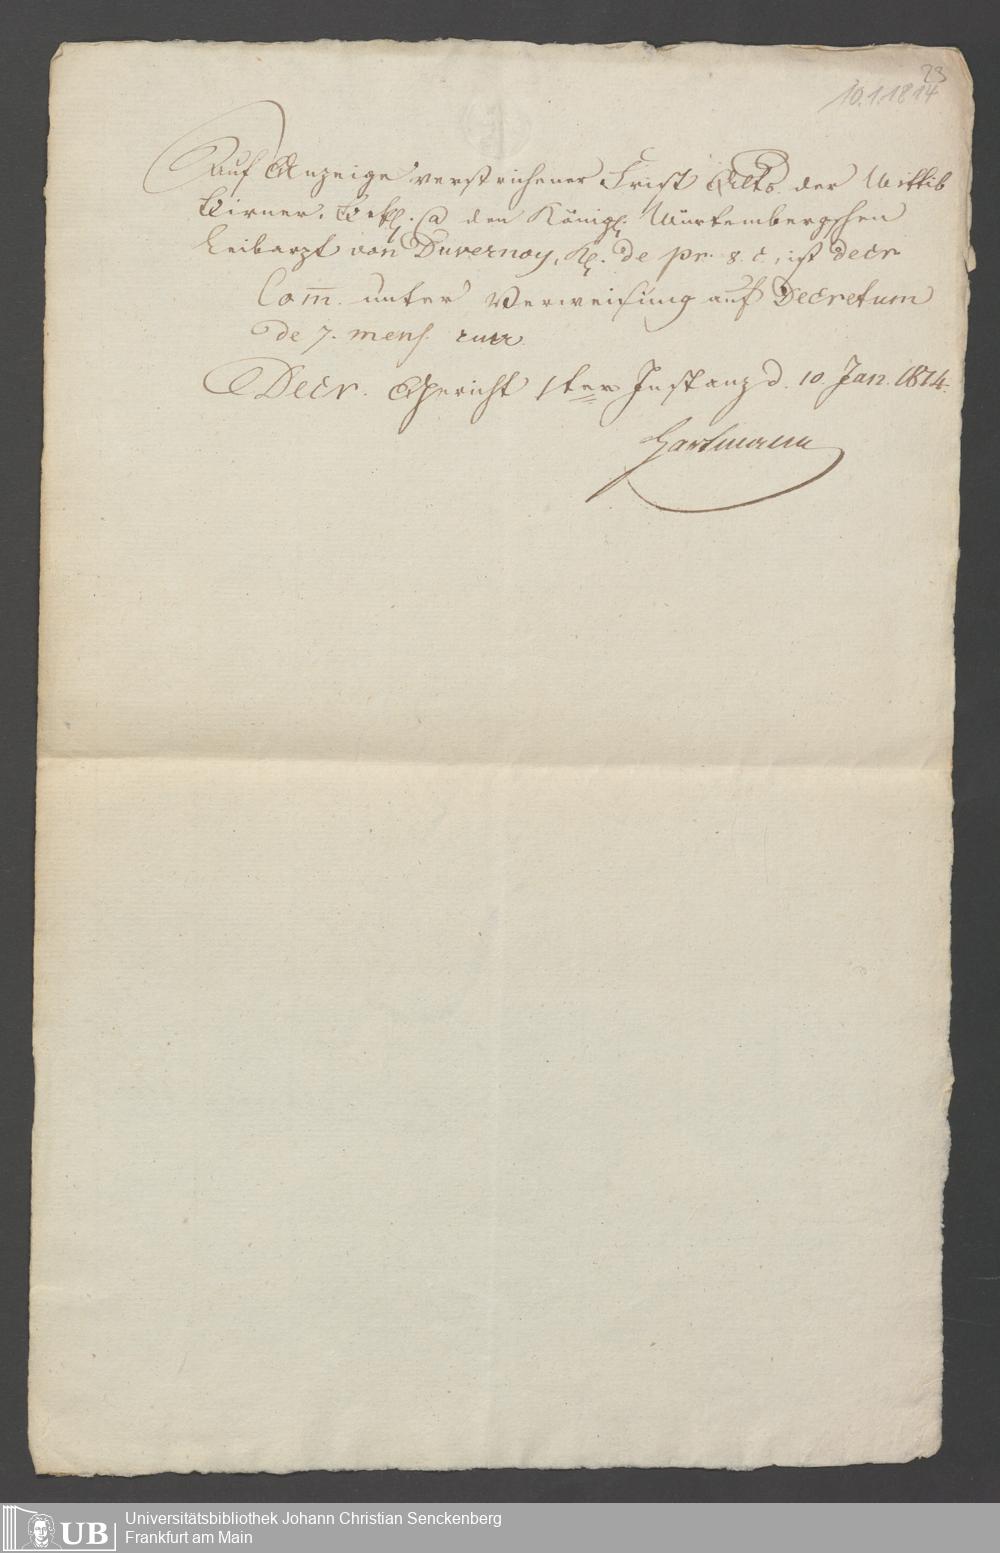 23
10.1.1814
Auf Anzeige verstrichener Frist der Wittib
Birner, Bekl. ca den Königl. Würtembergschen
Leibarzt von Duvernoy, Kl. de pr. 8. c, ist decr
Com. unter Verweisung auf Decretum
de 7. mens. curr.
Decr. Gericht 1ter Instanz d. 10. Jan. 1814.
Hartmann
UB
Universitätsbibliothek Johann Christian Senckenberg
Frankfurt am Main